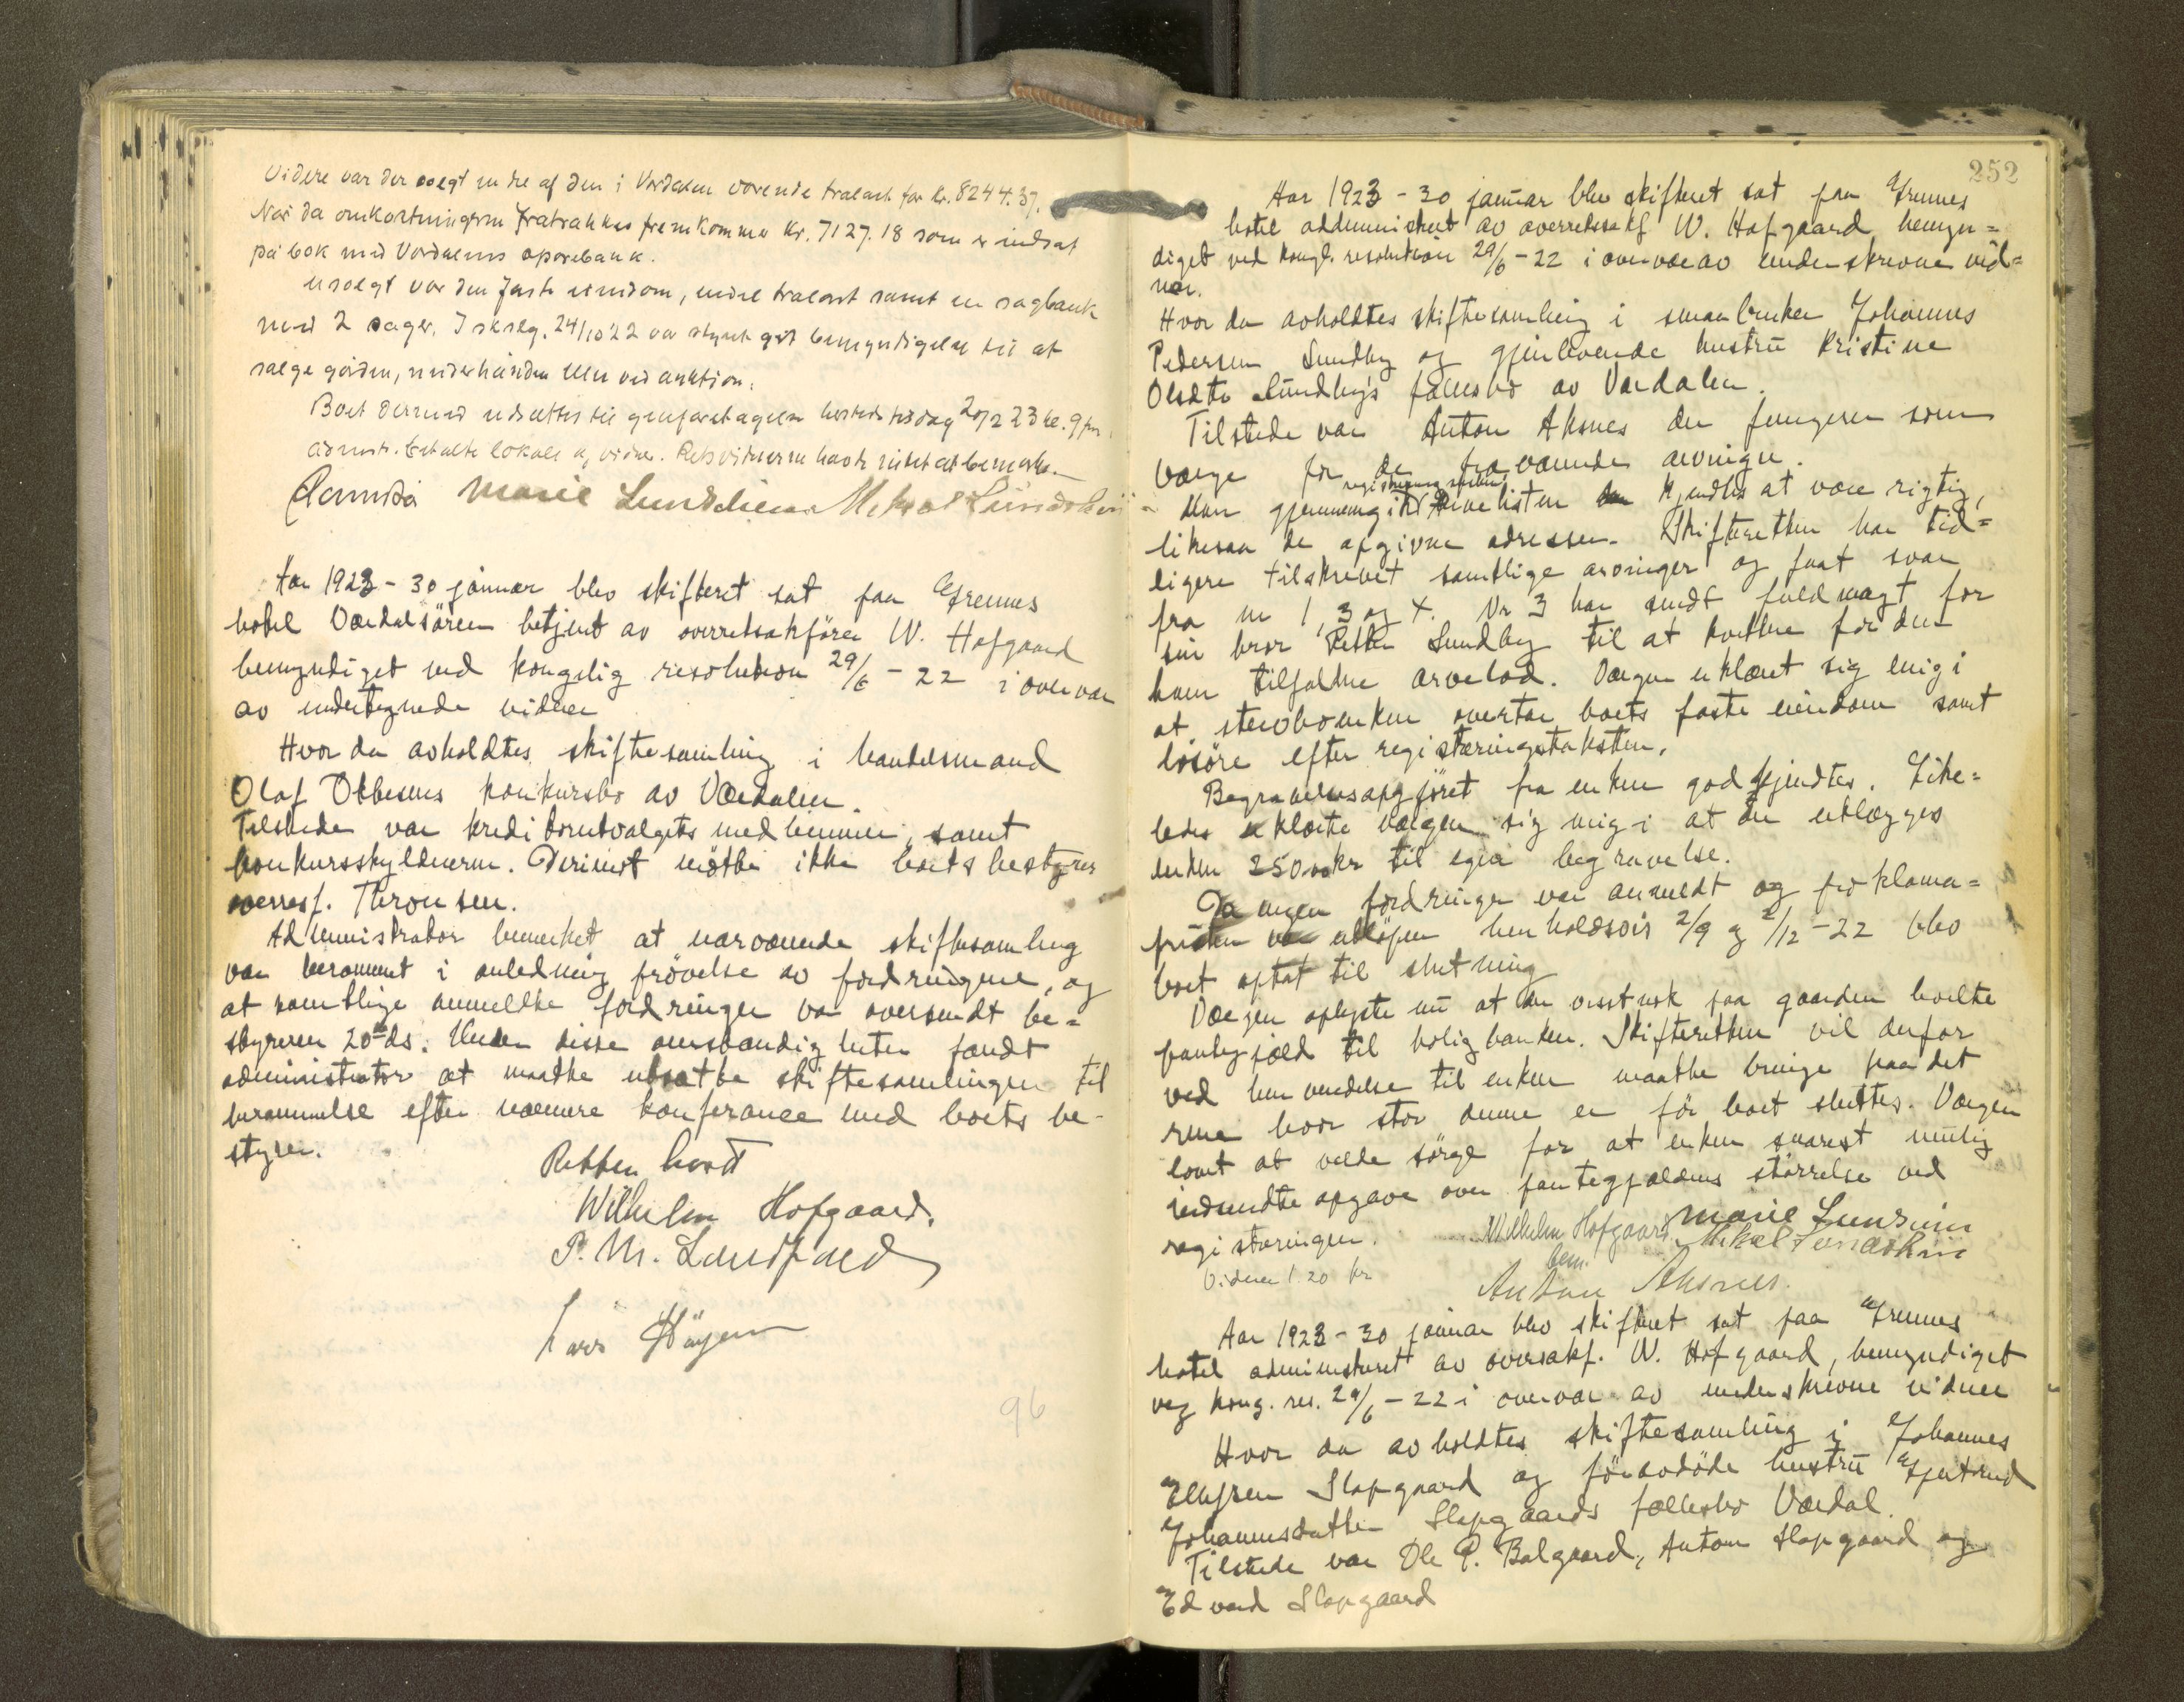 Videre var der solgt endel af den i Verdalen værende trælast for kr. 8244.37.
Når da omkostningerne fratrækkes fremkommer kr. 7127.18 som er indsat
på bok med Verdalens sparebank.
Usolgt var den faste eiendom, endel trælast samt en sagbænk
med 2 sager. I sksmlg. 24/10 22 var styret git bemyndigelse til at
sælge gården, underhånden eller ved auktion.
Boet dermed utsættes til gjenforetagelse herstede tisdag 20/2 23 kl. 9 fm.
Admstr. betalte lokale og vidner. Retsvidnerne havde intet at bemerke.
Marie Lundskin Mikal Lundskin
Aar 1923 - 30 januar blev skifteret sat paa Grennes
hotel Værdalsøren betjent av overretssakfører W. Hofgaard
bemyndiget ved kongelig resolution 29/6 - 22 i overvær
av undertegnede vidner
Hvor da avholdtes skiftesamling i handelsmand
Olaf Tebbesens konkursbo av Værdalen.
Tilstede var kreditorutvalgets medlemmer, samt
konkursskyldneren. Derimot møtte ikke boets bestyrer
overrsf. Thronsen.
Administrator bemerket at nærværende skiftesamling
var berammet i anledning prøvelse av fordringene, og
at samtlige anmeldte fordringer var oversendt be=
styreren 20de ds. Under disse omstændigheter fandt
administrator at maatte utsætte skiftesamlingen til
berammelse efter nærmere konferance med boets be-
styrer.
Retten hævet
Wilhelm Hofgaard.
P. M. Landfald
Lars
96
252
Aar 1923 - 30 januar blev skifteret sat paa Grennes
hotel addministreret av overretssakf W. Hofgaard, bemyn=
diget ved kongl. resolution 29/6 - 22 i overvær av underskrevne vid=
ner.
Hvor da avholdtes skiftesamling i smaabruker Johannes
Pedersen Sundby og gjenlevende hustru Kristine
Olsdtr Sundby's fællesbo av Værdalen.
Tilstede var Anton Aksnes der fungerer som
værge for de fraværende arvinger.
registrering
Man gjennemgik arvelisten kjendtes at være rigtig,
likesaa de opgivne adresser. Skifteretten har tid=
ligere tilskrevet samtlige arvinger og faat svar
fra nr 1, 3 og 4. Nr 3 har sendt fuldmagt for
sin bror Petter Sundby til at kvittere for den
ham tilfaldne arvelod. Værgen erklæret sig enig i
at stervboenken overtar boets faste eiendom samt
løsøre efter registreringstaksten.
Begravelsesopgjøret fra enken godkjendtes. Like=
ledes erklærte værgen sig enig i at der utlægges
enken 250.00 kr til egen begravelse.
Da ingen fordringer var anmeldt og proklama=
fristen var utløpen henholdsvis 2/9 og 2/12 - 22 blev
boet optat til slutning
Værgen oplyste nu at der visstnok paa gaarden hvilte
pantegjæld til boligbanken. Skifteretten vil derfor
ved henvendelse til enken maatte bringe paa det
rene hvor stor denne er før boet sluttes. Værgen
lovet at ville sørge for at enken snarest mulig
indsendte opgave over pantegjældens størrelse ved
registreringen.
Wilhelm Hofgaard Marie Lundskin
bem. Mikal Lundskin
Vidner 1.20 kr
Anton Aksnes.
Aar 1923 - 30 januar blev skifteret sat paa Grennes
hotel administreret av oversakf. W. Hofgaard, bemyndiget
veg kong. res. 29/6 - 22 i overvær av underskrevne vidner
Hvor da avholdtes skiftesamling i Johannes
Ellefsen Slapgaard og føravdøde hustru Gjertrud
Johannesdatter Slapgaards fællesbo Værdal.
Tilstede var Ole P. Balgaard, Anton Slapgaard og
Edvard Slapgaard